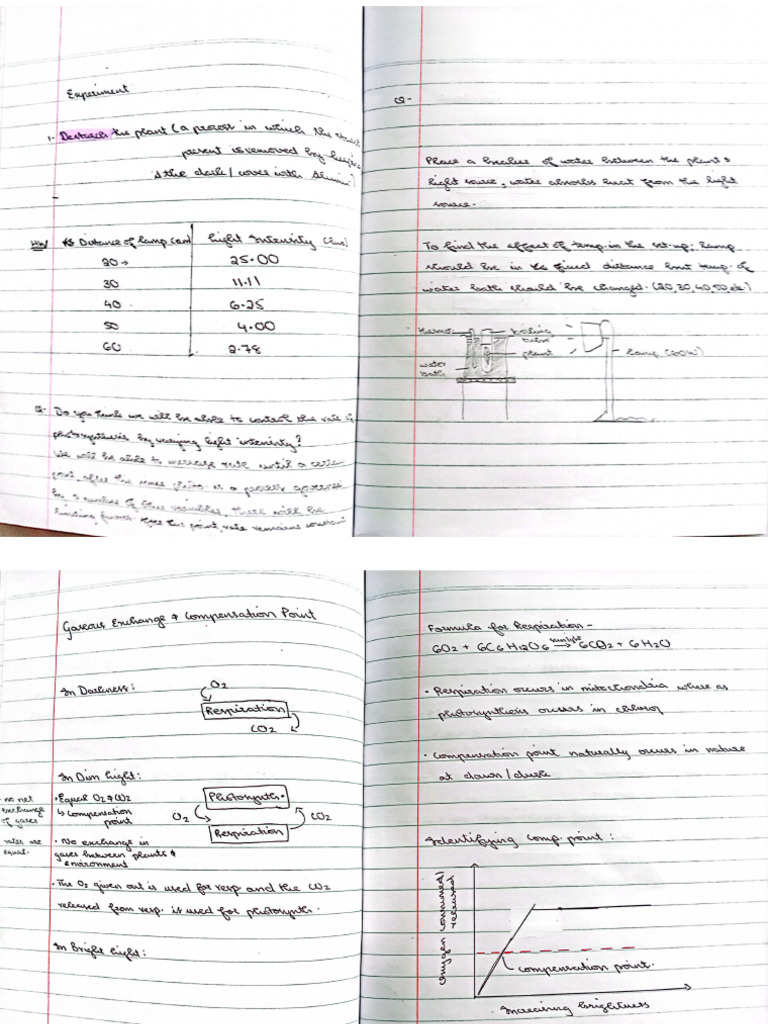 Experiment
1- Destarch the plant (a process in which the starch
present is removed by keeping
in the dark / cover with Alumini)
HW Distance of lamp (cm) Light Intensity (lux)
20 25.00
30 11.11
40 6.25
50 4.00
60 2.78
Q- Do you think we will be able to control the rate of
photosynthesis by varying light intensity?
We will be able to increase rate until a certain
point, after this more as a process governed
by a number of variables, there will be
limiting factors. this point, rate remains constant
Q-
Place a beaker of water between the plant &
light source, water absorbs heat from the light
source.
To find the effect of temp. in the set-up; lamp
should be in fixed distance but temp. of
water bath should be changed. (20,30,40,50, etc)
thermo. boiling
tube
plant
water
bath
lamp (60W)
Gaseous Exchange & Compensation Point
In Darkness:
O2
Respiration
CO2
In Dim light:
- no net
exchange
of gases
rates are
equal.
• Equal O2 & CO2
↳ compensation
point
• No exchange in
gases between plants &
environment
Photosynth.
O2 CO2
Respiration
• The O2 given out is used for resp and the CO2
released from resp. is used for photosynth.
In Bright light:
Formula for Respiration -
6O2 + 6C6H12O6 sunlight → 6CO2 + 6H2O
• Respiration occurs in mitochondria where as
photosynthesis occurs in chlorop
• Compensation point naturally occurs in nature
at dawn / dusk
Identifying comp. point:
Oxygen consumed/
released
compensation point.
Increasing brightness